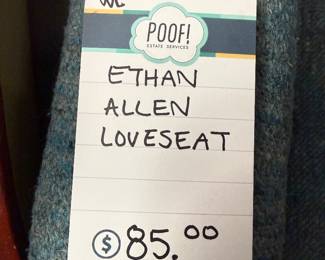 POOF!
ESTATE SERVICES
ETHAN
ALLEN
LOVESEAT
$85.00